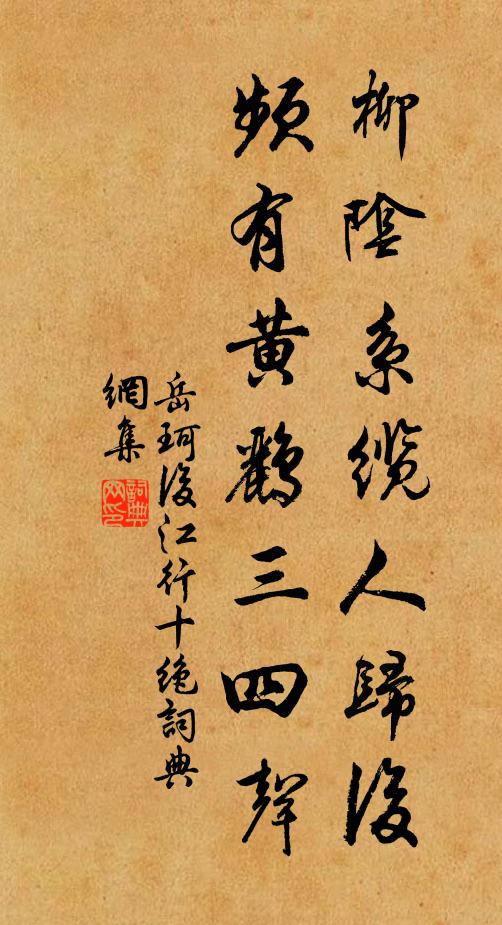 柳陰系纜人歸後
頻有黃鸝三四聲
岳珂後江行十絕詞典
網集
詞典網印